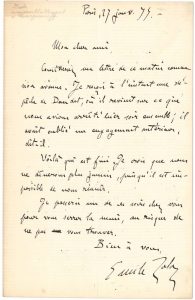 Paris, 27 janv. 77.
Mon cher ami
Considérez ma lettre de ce matin comme
non avenue. Je reçois à l'instant une dé-
pêche de Daudet, où il revient sur ce que
nous avions arrêté hier soir ensemble; il
avait oublié un engagement antérieur,
dit-il.
Voilà qui est fini. Je crois que nous
ne dînerons plus jamais, puisqu'il est im-
possible de nous réunir.
Je passerai un de ces soirs chez vous
pour vous serrer la main, au risque de
ne pas vous trouver.
Bien à vous,
Emile Zola